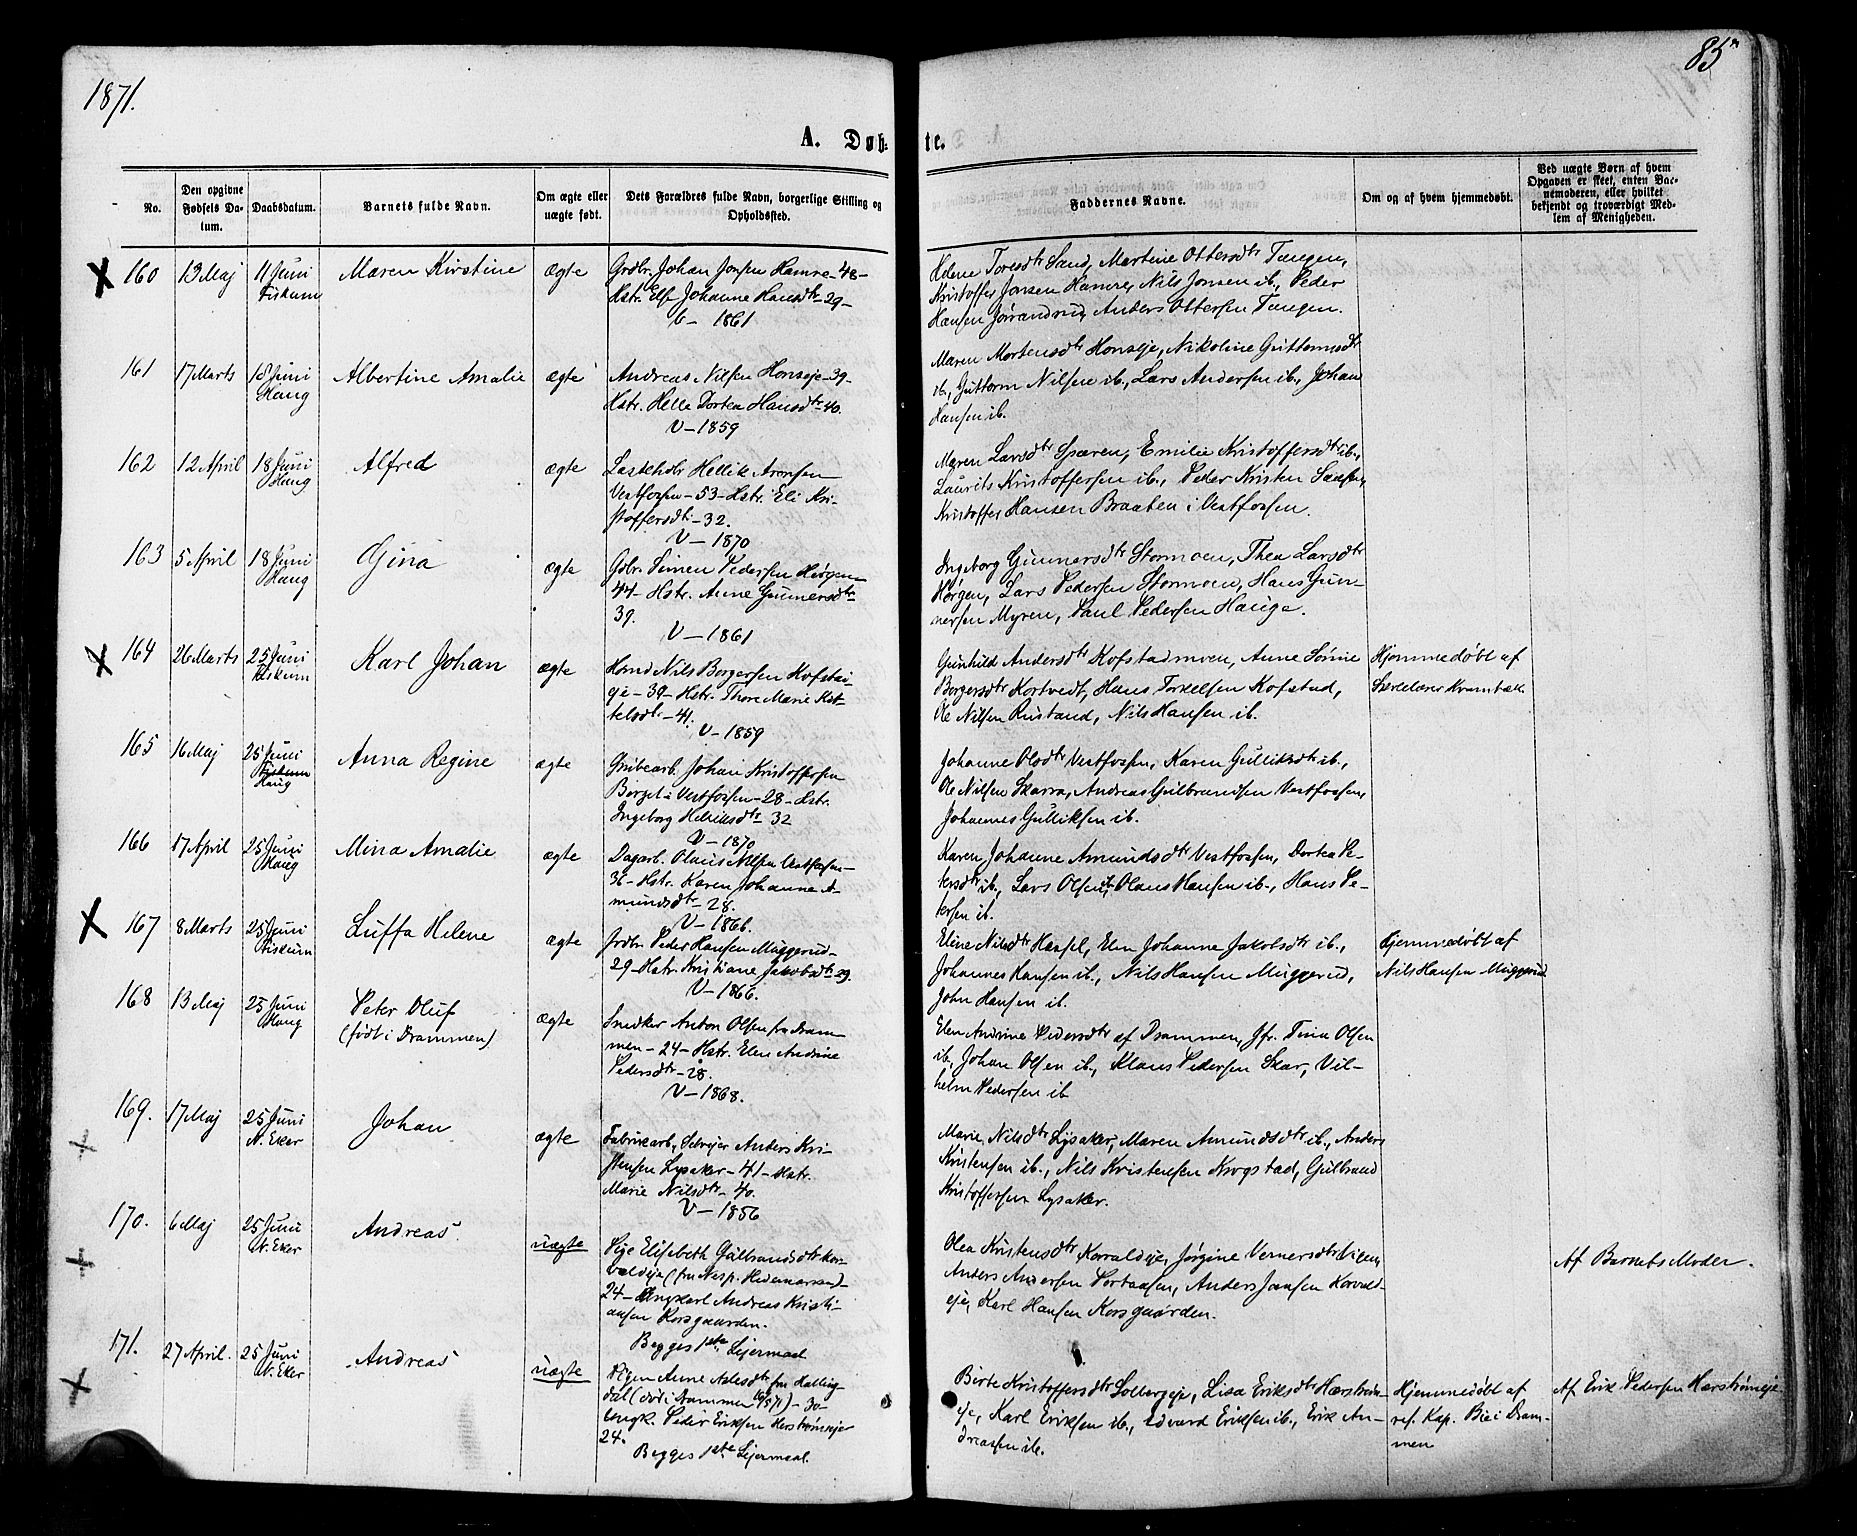 1871.
85
A. Døb-
te.
No.
Den opgivne Fødsels Datum.
Daabsdatum.
Barnets fulde Navn.
Om ægte eller uægte født.
Dets Forældres fulde Navn, borgerlige Stilling og Opholdssted.
Faddernes Navne.
Om og af hvem hjemmedøbt.
Ved uægte Børn af hvem Opgaven er skeet, enten Barnemoderen, eller hvilket bekjendt og troværdigt Medlem af Menigheden.
160 13 Maj 11 Juni Maren Kirstine ægte Grdbr. Johan Jonsen Hamre - 48 -
Fiskum Hstr. Else Johanne Hansdtr - 29 -
V - 1861
Helene Toresdtr Sand, Martine Ottersdtr Tangen,
Kristoffer Jonsen Hamre, Nils Jonsen ib., Peder
Hansen Jørandrud, Anders Ottersen Tangen.
161 17 Marts 18 Juni Albertine Amalie ægte Andreas Nilsen Honseje - 39 -
Haug Hstr. Helle Dortea Hansdtr - 40.
V - 1859
Maren Mortensdtr Honseje, Nikoline Guttormsdtr
ib., Guttorm Nilsen ib., Lars Andersen ib., Johan
Hansen ib.
162 12 April 18 Juni Alfred ægte Hellik Aronsen
Haug Vestfossen - 53 - Hstr. Eli Kri-
stoffersdtr - 32.
V - 1870
Maren Larsdtr Spæren, Emilie Kristoffersdtr ib.,
Laurits Kristoffersen ib., Peder Kristen
Kristoffer Hansen Braaten i Vestfossen.
163 5 April 18 Juni Gina ægte Gbr. Simen Pedersen Hørgen
Haug 44 - Hstr. Anne Gunnersdtr
39.
V - 1861
Ingeborg Gunnersdtr Stormoen, Thea Larsdtr
Hørgen, Lars Pedersen Stormoen, Hans Gun-
nersen Myren, Paul Pedersen Hauge.
164 26 Marts 25 Juni Karl Johan ægte Hsmd Nils Borgersen Kofstad-
Fiskum eje - 39 - Hstr. Thore Marie Kit-
telsdtr - 41.
V - 1859
Gunhild Andersdtr Kofstadmoen, Anne Sønnie
Borgersdtr Kortvedt, Hans Torkelsen Kofstad,
Ole Nilsen Rustand, Nils Hansen ib.
Hjemmedøbt af
165 16 Maj 25 Juni Anna Regine ægte Grubearb. Johan Kristoffersen
Fiskum
Haug Berget i Vestfossen - 28 - Hstr.
Ingeborg Helliksdtr 32
V - 1870
Johanne Olsdtr Vestfossen, Karen Gulliksdtr ib.,
Ole Nilsen Skarra, Andreas Gulbrandsen Vestfossen,
Johannes Gulliksen ib.
166 17 April 25 Juni Mina Amalie ægte Dagarb. Olaus Nilsen Vestfossen -
Haug 36 - Hstr. Karen Johanne A-
mundsdtr - 28.
V - 1866.
Karen Johanne Amundsdtr Vestfossen, Dortea Pe-
tersdtr ib., Lars Olsen ib., Olaus Hansen ib., Hans Pe-
tersen ib.
167 8 Marts 25 Juni Luffa Helene ægte Grdbr. Peder Hansen Muggerud -
Fiskum 29 - Hstr. Kristiane Jakobsdtr 29.
V - 1866.
Eline Nilsdtr Hassel, Elen Johanne Jakobsdtr ib.,
Johannes Hansen ib., Nils Hansen Muggerud,
John Hansen ib.
Hjemmedøbt af
Nils Hansen Muggerud
168 13 Maj 25 Juni Peter Oluf ægte Snedker Anton Olsen fra Dram-
Haug (født i Drammen) men - 24 - Hstr. Elen Andrine
Pedersdtr - 28.
V - 1868.
Elen Andrine Pedersdtr af Drammen, Jfr. Tina Olsen
ib., Johan Olsen ib., Klaus Pedersen Skar, Vil-
helm Pedersen ib
169. 17 Maj 25 Juni Johan ægte Fabrikarb. Anders Kri-
N. Eker stensen Lysaker - 41 - Hstr.
Marie Nilsdtr - 40.
V - 1856
Marie Nilsdtr Lysaker, Maren Amundsdtr ib., Anders
Kristensen ib., Nils Kristensen Krogstad, Gulbrand
Kristoffersen Lysaker.
170. 6 Maj 25 Juni Andreas uægte Pige Elisabeth Gulbrandsdtr Kor-
N. Eker valdeje (fra Nesp. Hedemarken) -
24 - Ungkarl Andreas Kristi-
ansen Korsgaarden.
Begges 1ste Lejermaal
Olea Kristensdtr Korvaldeje, Jørgine Vernersdtr Vigen,
Anders Andersen Portaasen, Anders Jansen Korvald-
eje, Karl Hansen Korsgaarden.
Af Barnets Moder.
171. 27 April. 25 Juni Andreas uægte Pigen Anne Aslesdtr fra Halling-
N. Eker dal (død i Drammen) - 30 -
Ungk. Peder Eriksen Hærstrømeje
24.
Begges 1ste Lejermaal.
Birte Kristoffersdtr Solbergeje, Lisa Eriksdtr Hærstrøm-
eje, Karl Eriksen ib., Edvard Eriksen ib., Erik An-
dreassen ib.
Hjemmedøbt af
res. Kap. Bie i Dram-
men
Af Erik Pedersen Hærstrømeje